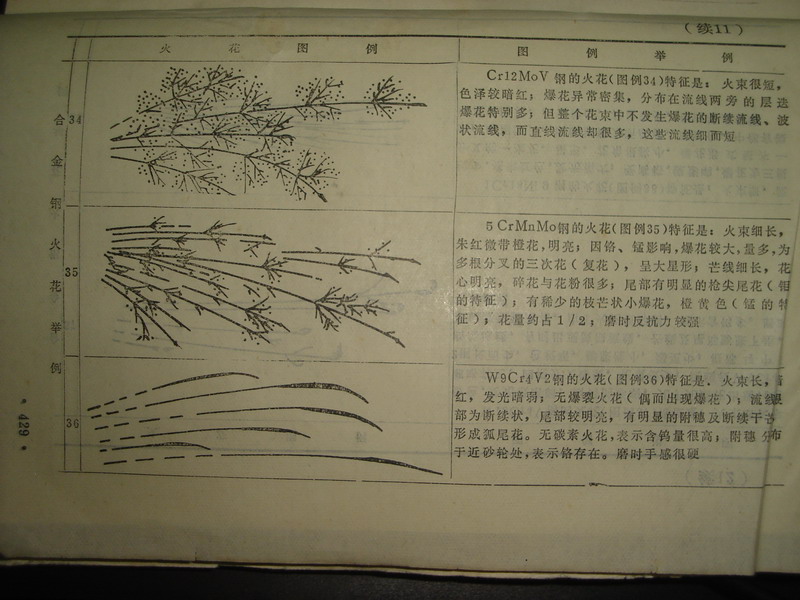 （续11）
火 花 图 例
图 例 举 例
合金钢火花举例
34
Cr12MoV 钢的火花（图例34）特征是： 火束很短，
色泽较暗红； 爆花异常密集， 分布在流线两旁的层迭
爆花特别多；但整个花束中不发生爆花的断续流线、波
状流线，而直线流线却很多，这些流线细而短
35
5 CrMnMo钢的火花（图例35）特征是： 火束细长，
朱红微带橙花，明亮； 因铬、锰影响，爆花较大，量多，为
多根分叉的三次花（复花）， 呈大星形； 芒线细长， 花
心明亮， 碎花与花粉很多； 尾部有明显的枪尖尾花（钼
的特征）；有稀少的枝芒状小爆花， 橙黄色（锰的特
征）；花量约占1/2；磨时反抗力较强
36
W9Cr4V2钢的火花（图例36）特征是． 火束长，
红，发光暗弱； 无爆裂火花（偶而出现爆花）；流线
部为断续状， 尾部较明亮， 有明显的附穗及断续于
形成狐尾花。无碳素火花，表示含钨量很高； 附穗分布
于近砂轮处，表示铬存在。磨时手感很硬
• 429 •